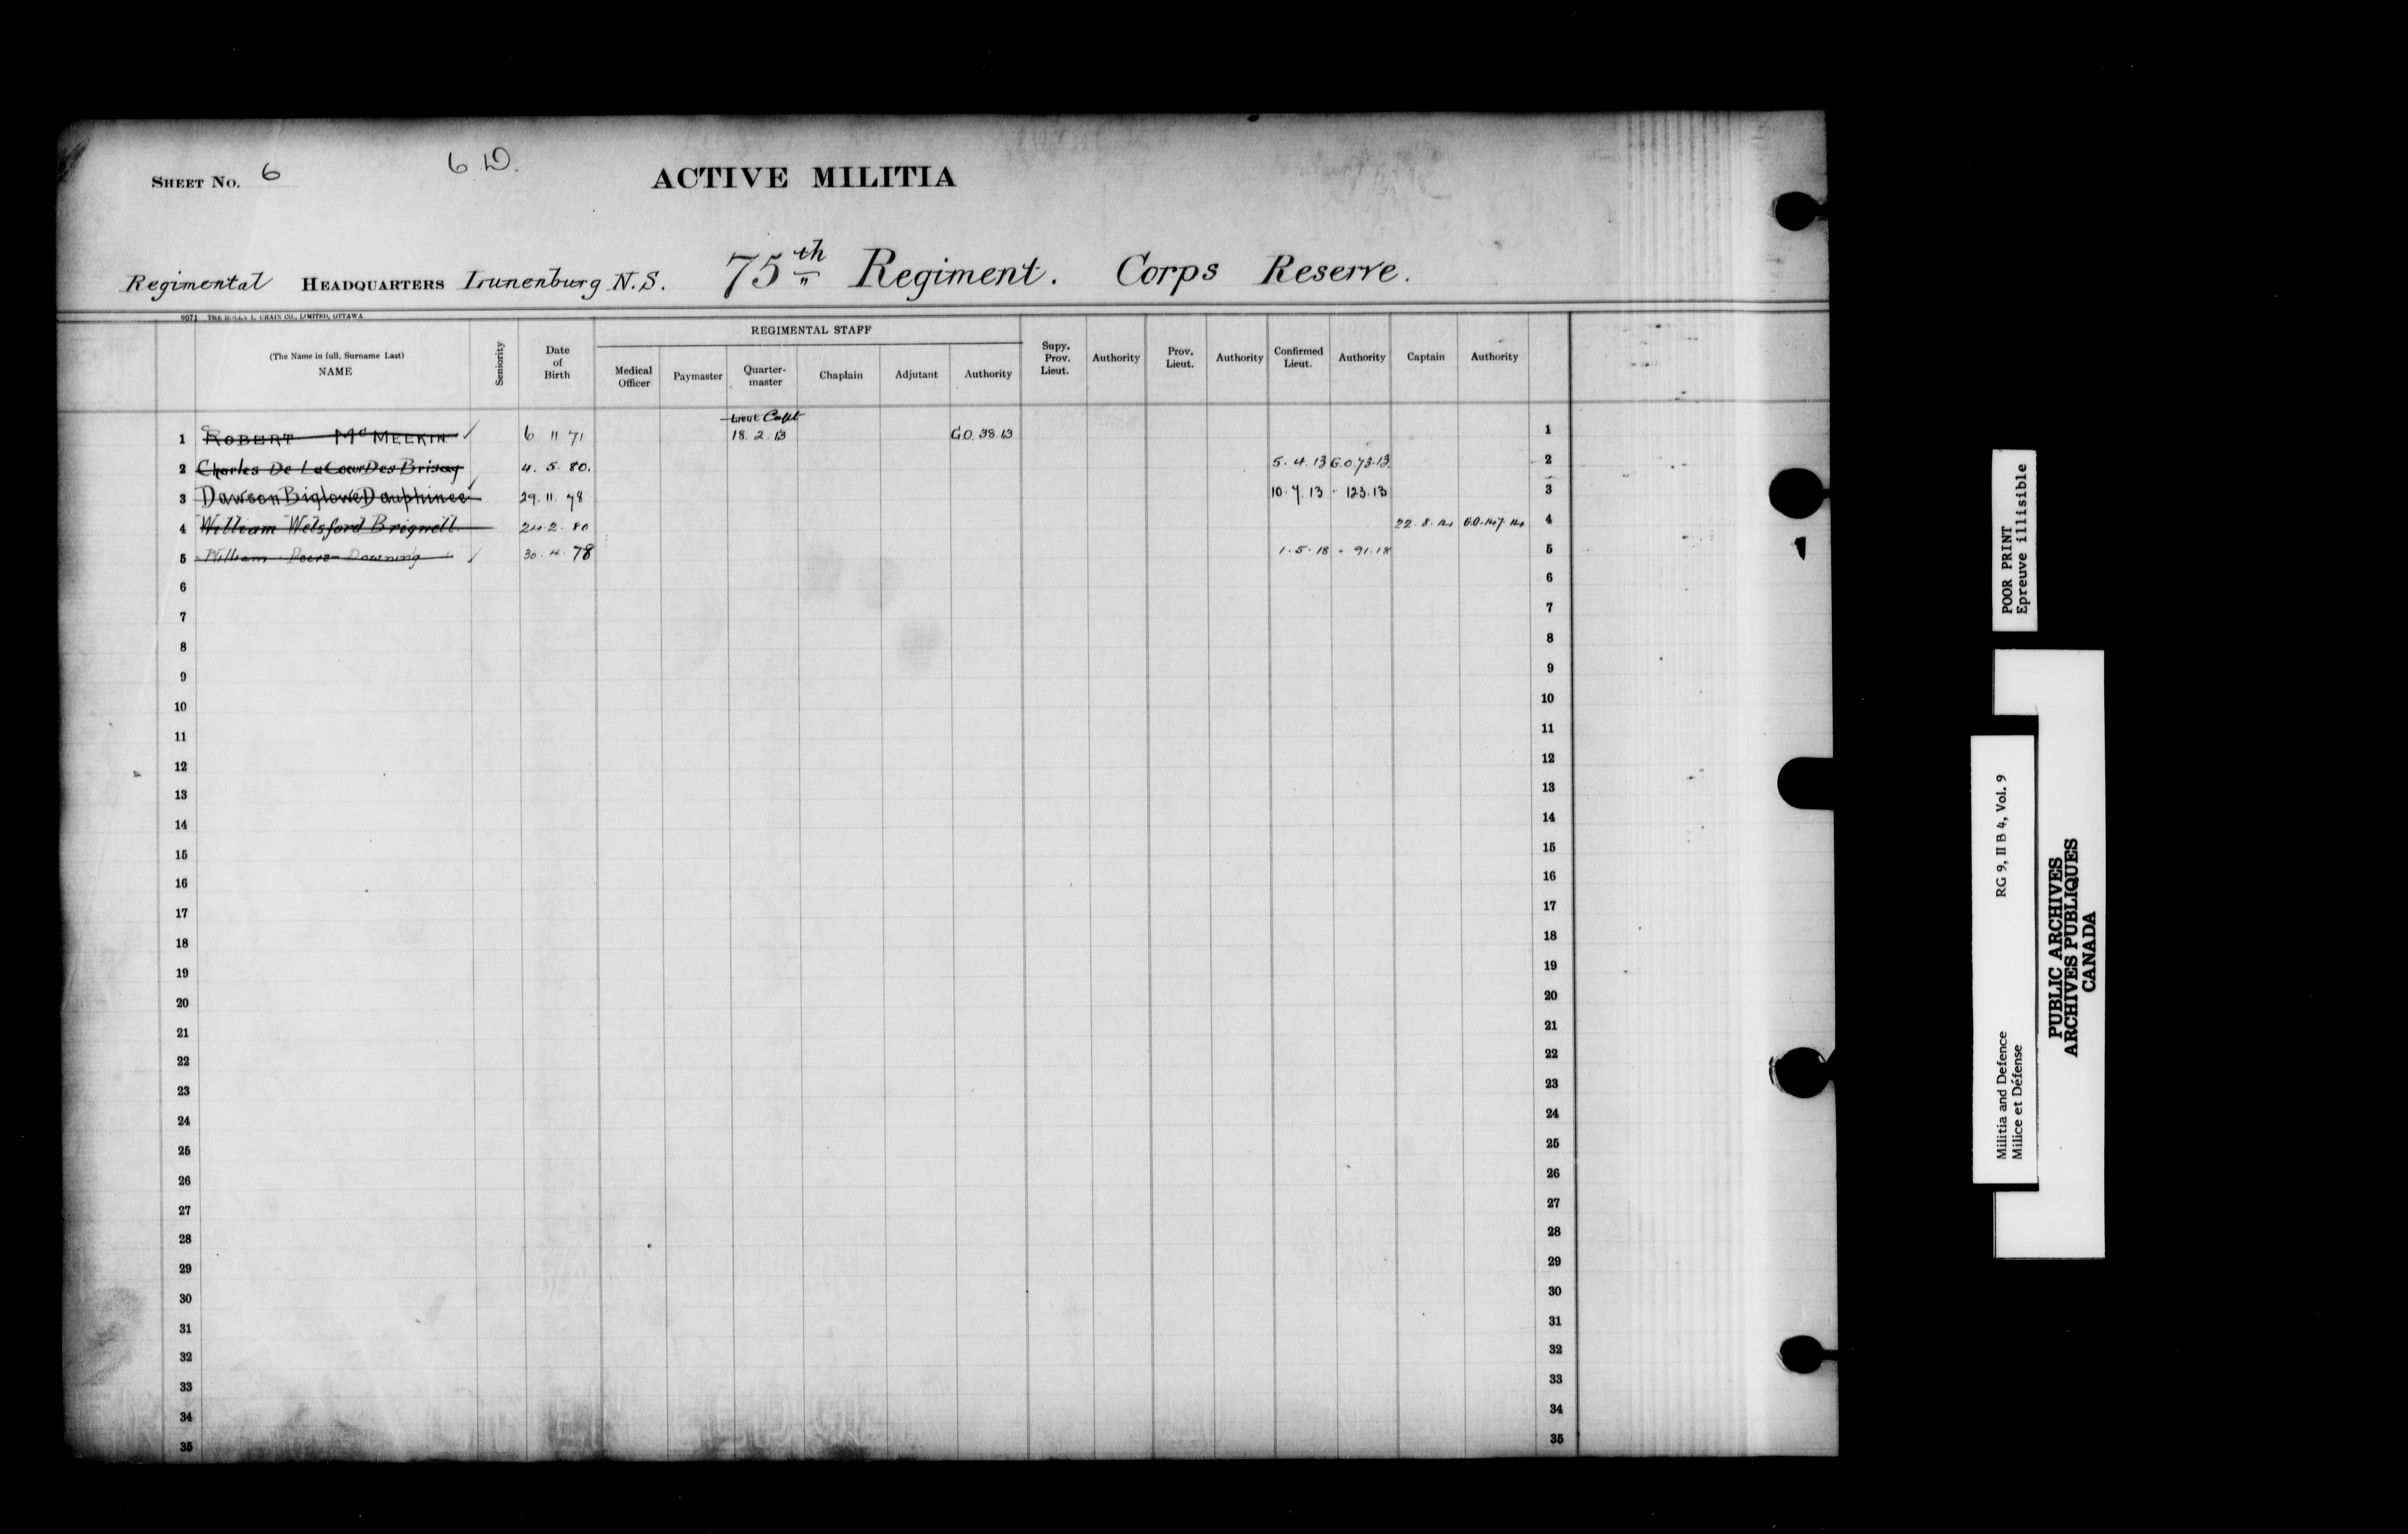 SHEET No. 6
6 D.
ACTIVE MILITIA
Regimental HEADQUARTERS Lunenburg N.S. 75th Regiment. Corps Reserve.
9071 THE ROLLA L. CRAIN CO., LIMITED, OTTAWA
REGIMENTAL STAFF
(The Name in full, Surname Last) NAME Seniority Date of Birth Medical Officer Paymaster Quarter-master Chaplain Adjutant Authority Supy. Prov. Lieut. Authority Prov. Lieut. Authority Confirmed Lieut. Authority Captain Authority
Lieut Capt
1 ROBERT McMEEKIN 6 11 71 18. 2. 13 G.O. 38 13 1
2 Charles De LaCourDesBrisay 4. 5. 80. 5. 4. 13 G.O. 73.13 2
3 Dawson Biglowe Dauphinee 29. 11. 78 10. 7. 13 " 123.13 3
4 William Welsford Brignell 24. 2. 80 22. 8. 14 G.O. 147. 14 4
5 William Downing 30. 4. 78 1. 5. 18 " 91.18 5
6 6
7 7
8 8
9 9
10 10
11 11
12 12
13 13
14 14
15 15
16 16
17 17
18 18
19 19
20 20
21 21
22 22
23 23
24 24
25 25
26 26
27 27
28 28
29 29
30 30
31 31
32 32
33 33
34 34
35 35
POOR PRINT
Epreuve illisible
Militia and Defence RG 9, II B 4, Vol. 9
Milice et Défense
PUBLIC ARCHIVES
ARCHIVES PUBLIQUES
CANADA